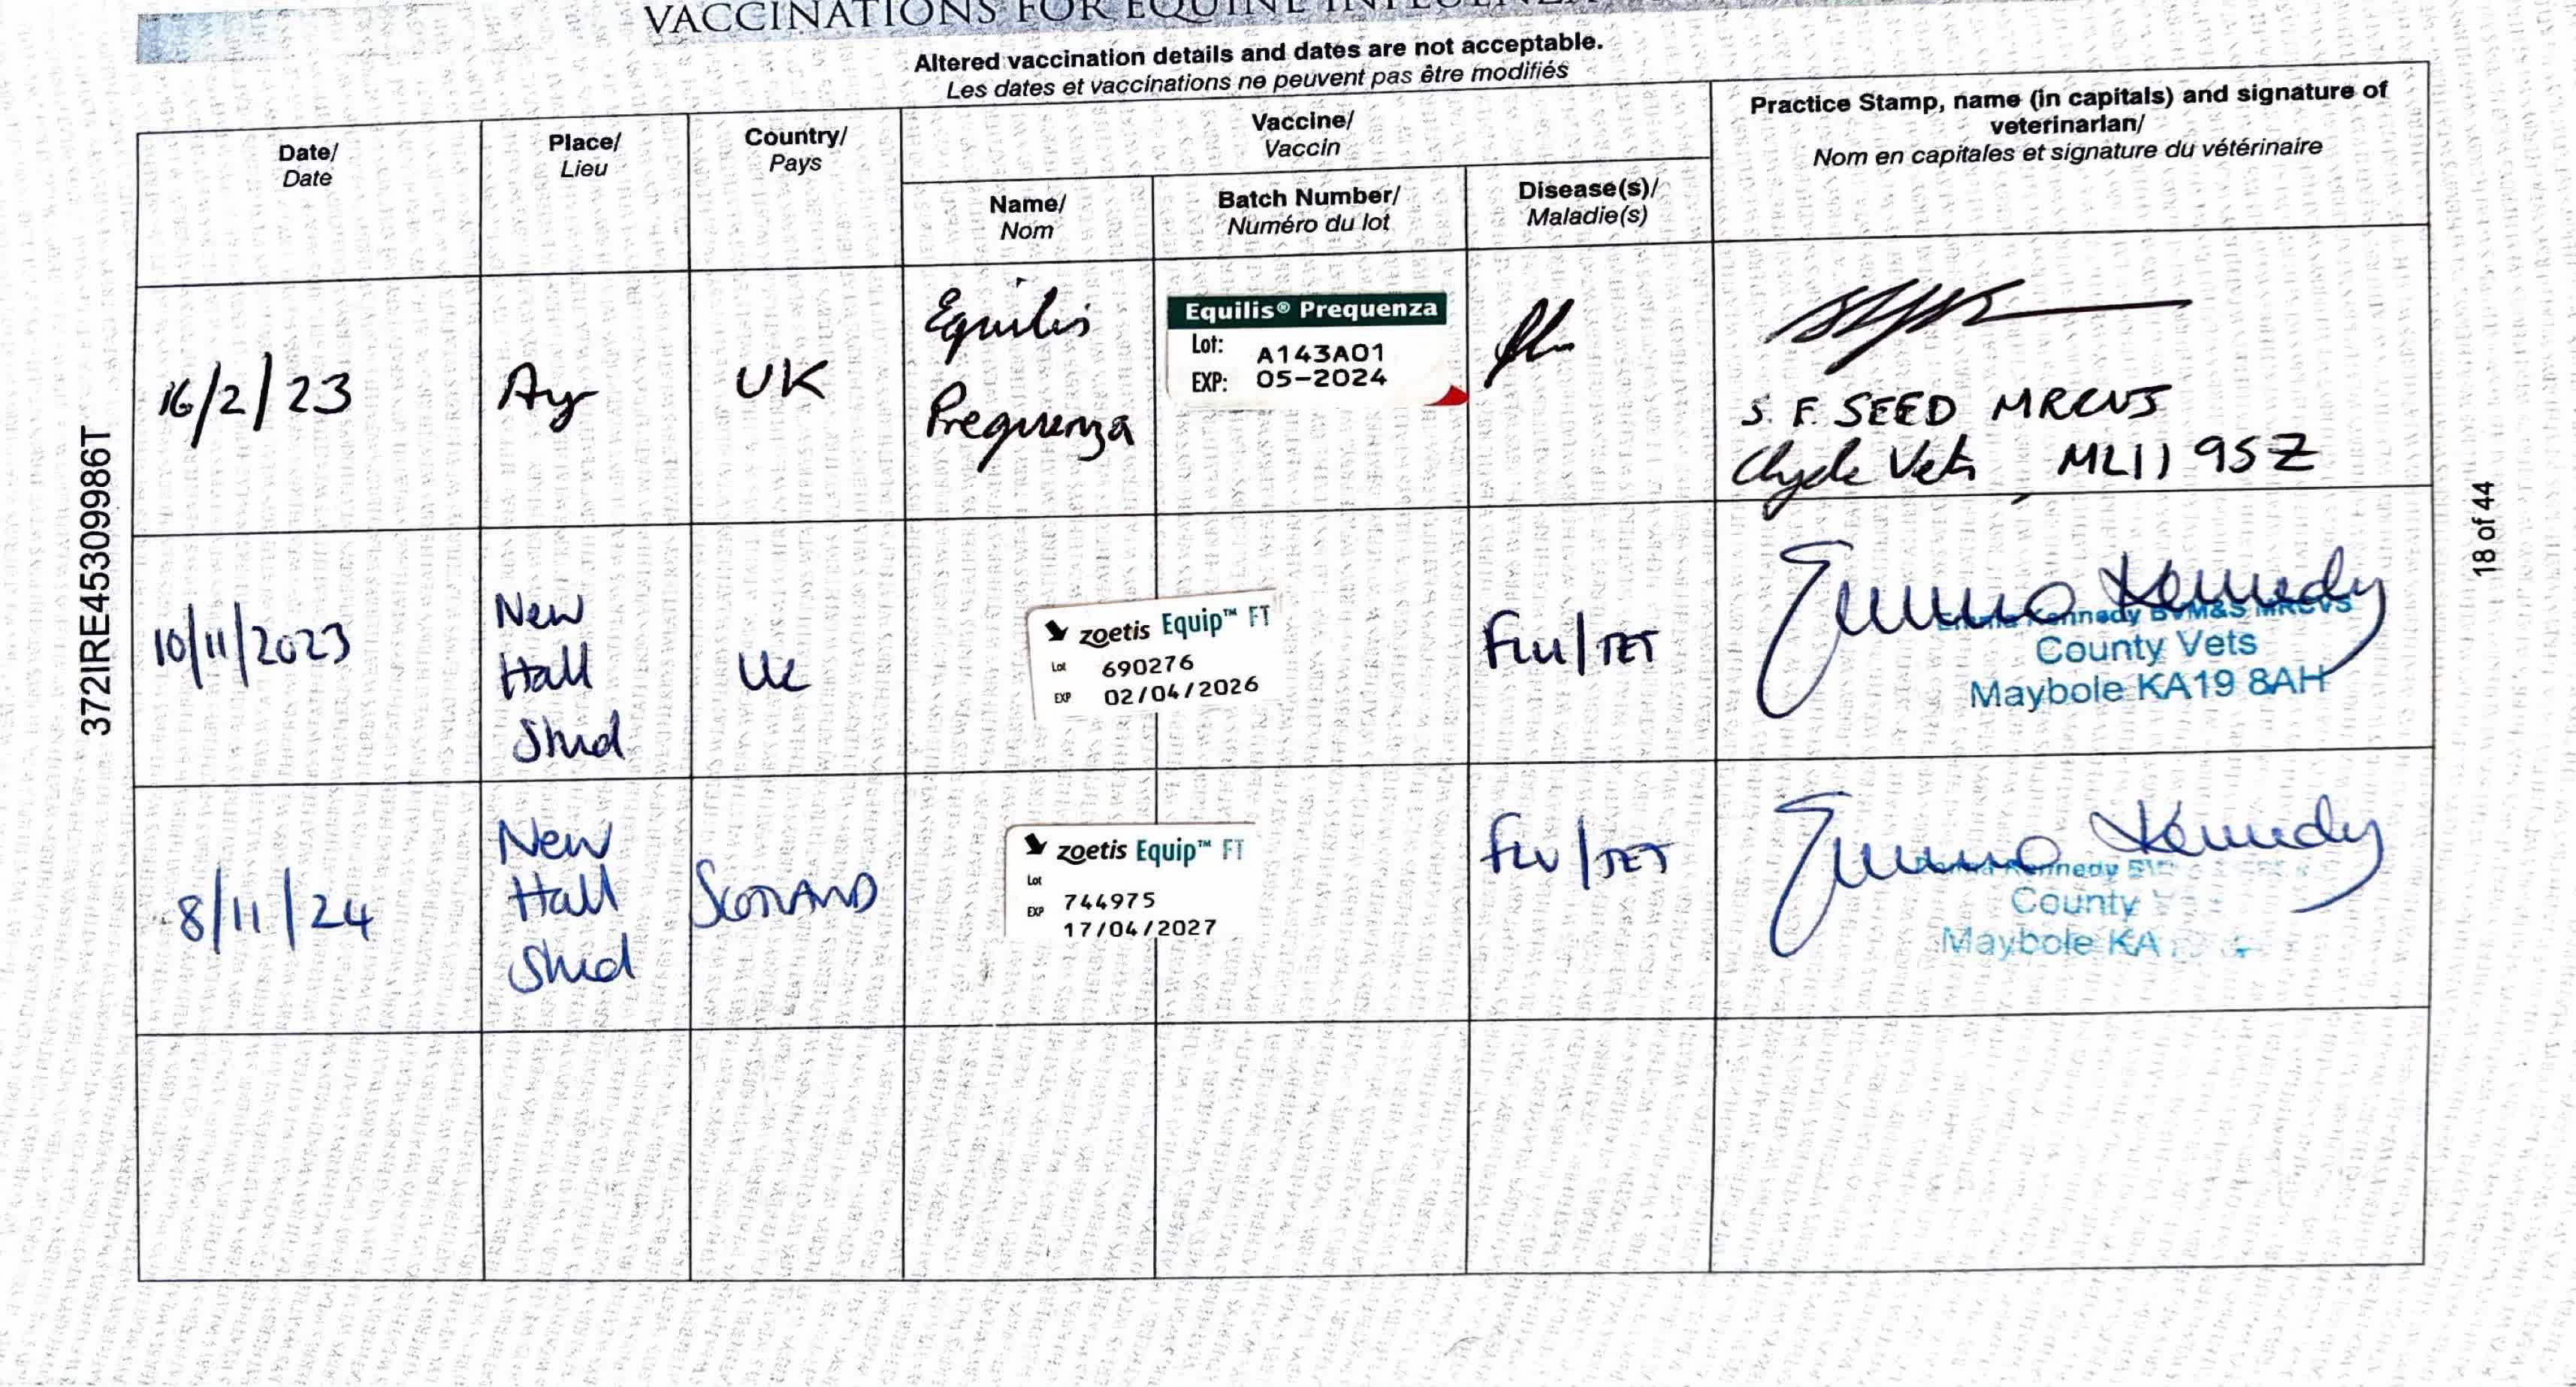 VACCINATIONS FOR EQUINE
Altered vaccination details and dates are not acceptable.
Les dates et vaccinations ne peuvent pas être modifiés
Date/
Date
Place/
Lieu
Country/
Pays
Vaccine/
Vaccin
Name/
Nom
Batch Number/
Numéro du lot
Disease(s)/
Maladie(s)
Practice Stamp, name (in capitals) and signature of
veterinarian/
Nom en capitales et signature du vétérinaire
16/2/23
Ayr
UK
Equilis
Prequenza
Equilis® Prequenza
Lot: A143A01
EXP: 05-2024
flu
S. F. SEED MRCVS
Clyde Vets ML11 9SZ
10/11/2023
New
Hall
Stud
UK
zoetis Equip™ FT
Lot 690276
EXP 02/04/2026
Flu/TET
Emma Kennedy
Emma Kennedy BVM&S MRCVS
County Vets
Maybole KA19 8AH
8/11/24
New
Hall
Stud
SCOTLAND
zoetis Equip™ FT
Lot
744975
EXP
17/04/2027
FLU/TET
Emma Kennedy
Kennedy
County
Maybole KA
372IRE45309986T
18 of 44